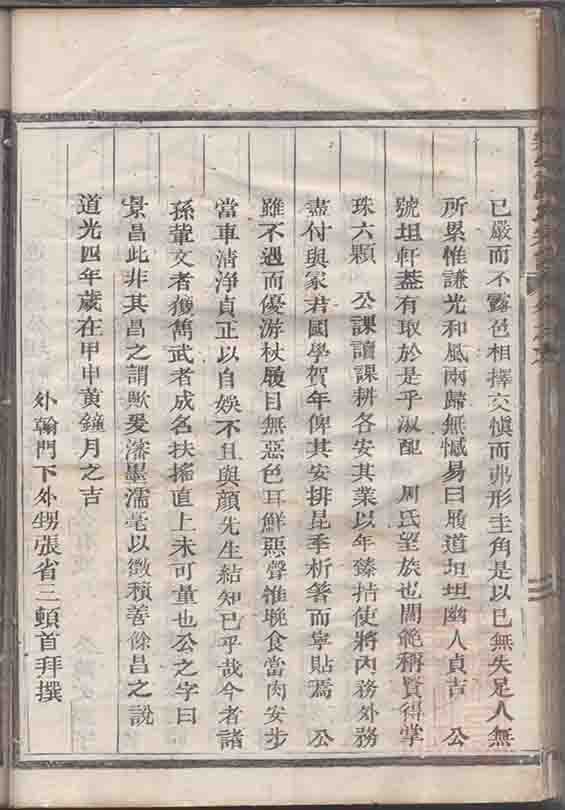 已嚴而不露色相擇交慎而弗形圭角是以已無失足人無
所累惟謙光和風兩歸無憾易曰履道坦坦幽人貞吉　公
號坦軒蓋有取於是乎淑配　周氏望族也閫範稱賢得掌
珠六顆　公課讀課耕各安其業以年臻拮使將內務外務
盡付與冢君國學賀年俾其安排昆季析箸而寧貼焉　公
雖不遇而優游杖履目無惡色耳鮮惡聲惟晚食當肉安步
當車清淨貞正以自娛不且與顏先生結知已乎哉今者諸
孫輩文者獲雋武者成名扶搖直上未可量也公之字曰
景昌此非其昌之謂歟爰濡墨濡毫以徵積善餘昌之說
道光四年歲在甲申黃鐘月之吉
外翰門下外甥張省三頓首拜撰